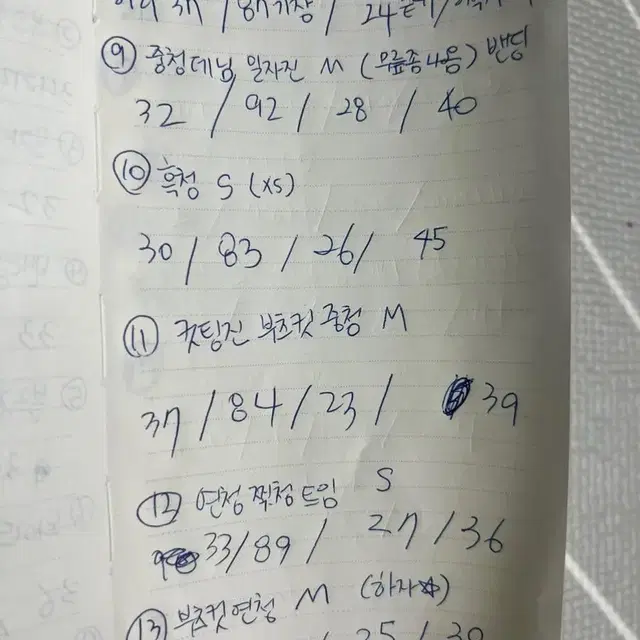 ⑨ 중청데님 일자진 M (무릎좀나옴) 밴딩
32 / 92 / 28 / 40
⑩ 흑청 S (XS)
30 / 83 / 26 / 45
⑪ 컷팅진 부츠컷 중청 M
37 / 84 / 23 / 39
⑫ 연청 찍청 트임 S
33/89 / 27 / 36
⑬ 부츠컷 연청 M (하자☆)
/ 25 / 39